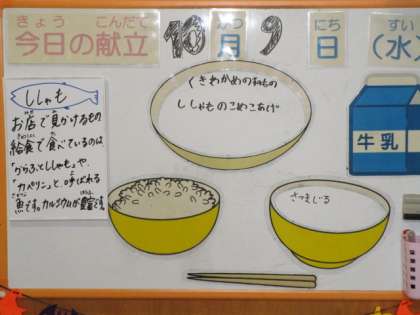 きょう こんだて がつ にち すい
今日の献立 10月9日(水
くきわかめのあえもの
ししゃものこめこあげ
ししゃも
お店で見かけるもの
給食で食べているのは
「からふとししゃも」や、
「カペリン」と呼ばれる
魚です。カルシウムが豊富です。
牛乳
さつまじる